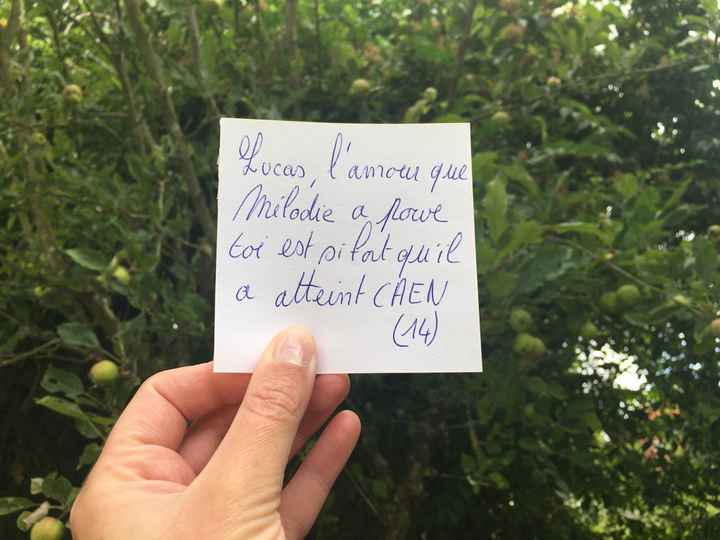 Lucas, l'amour que
Mélodie a pour
toi est si fort qu'il
a atteint CAEN
(14)